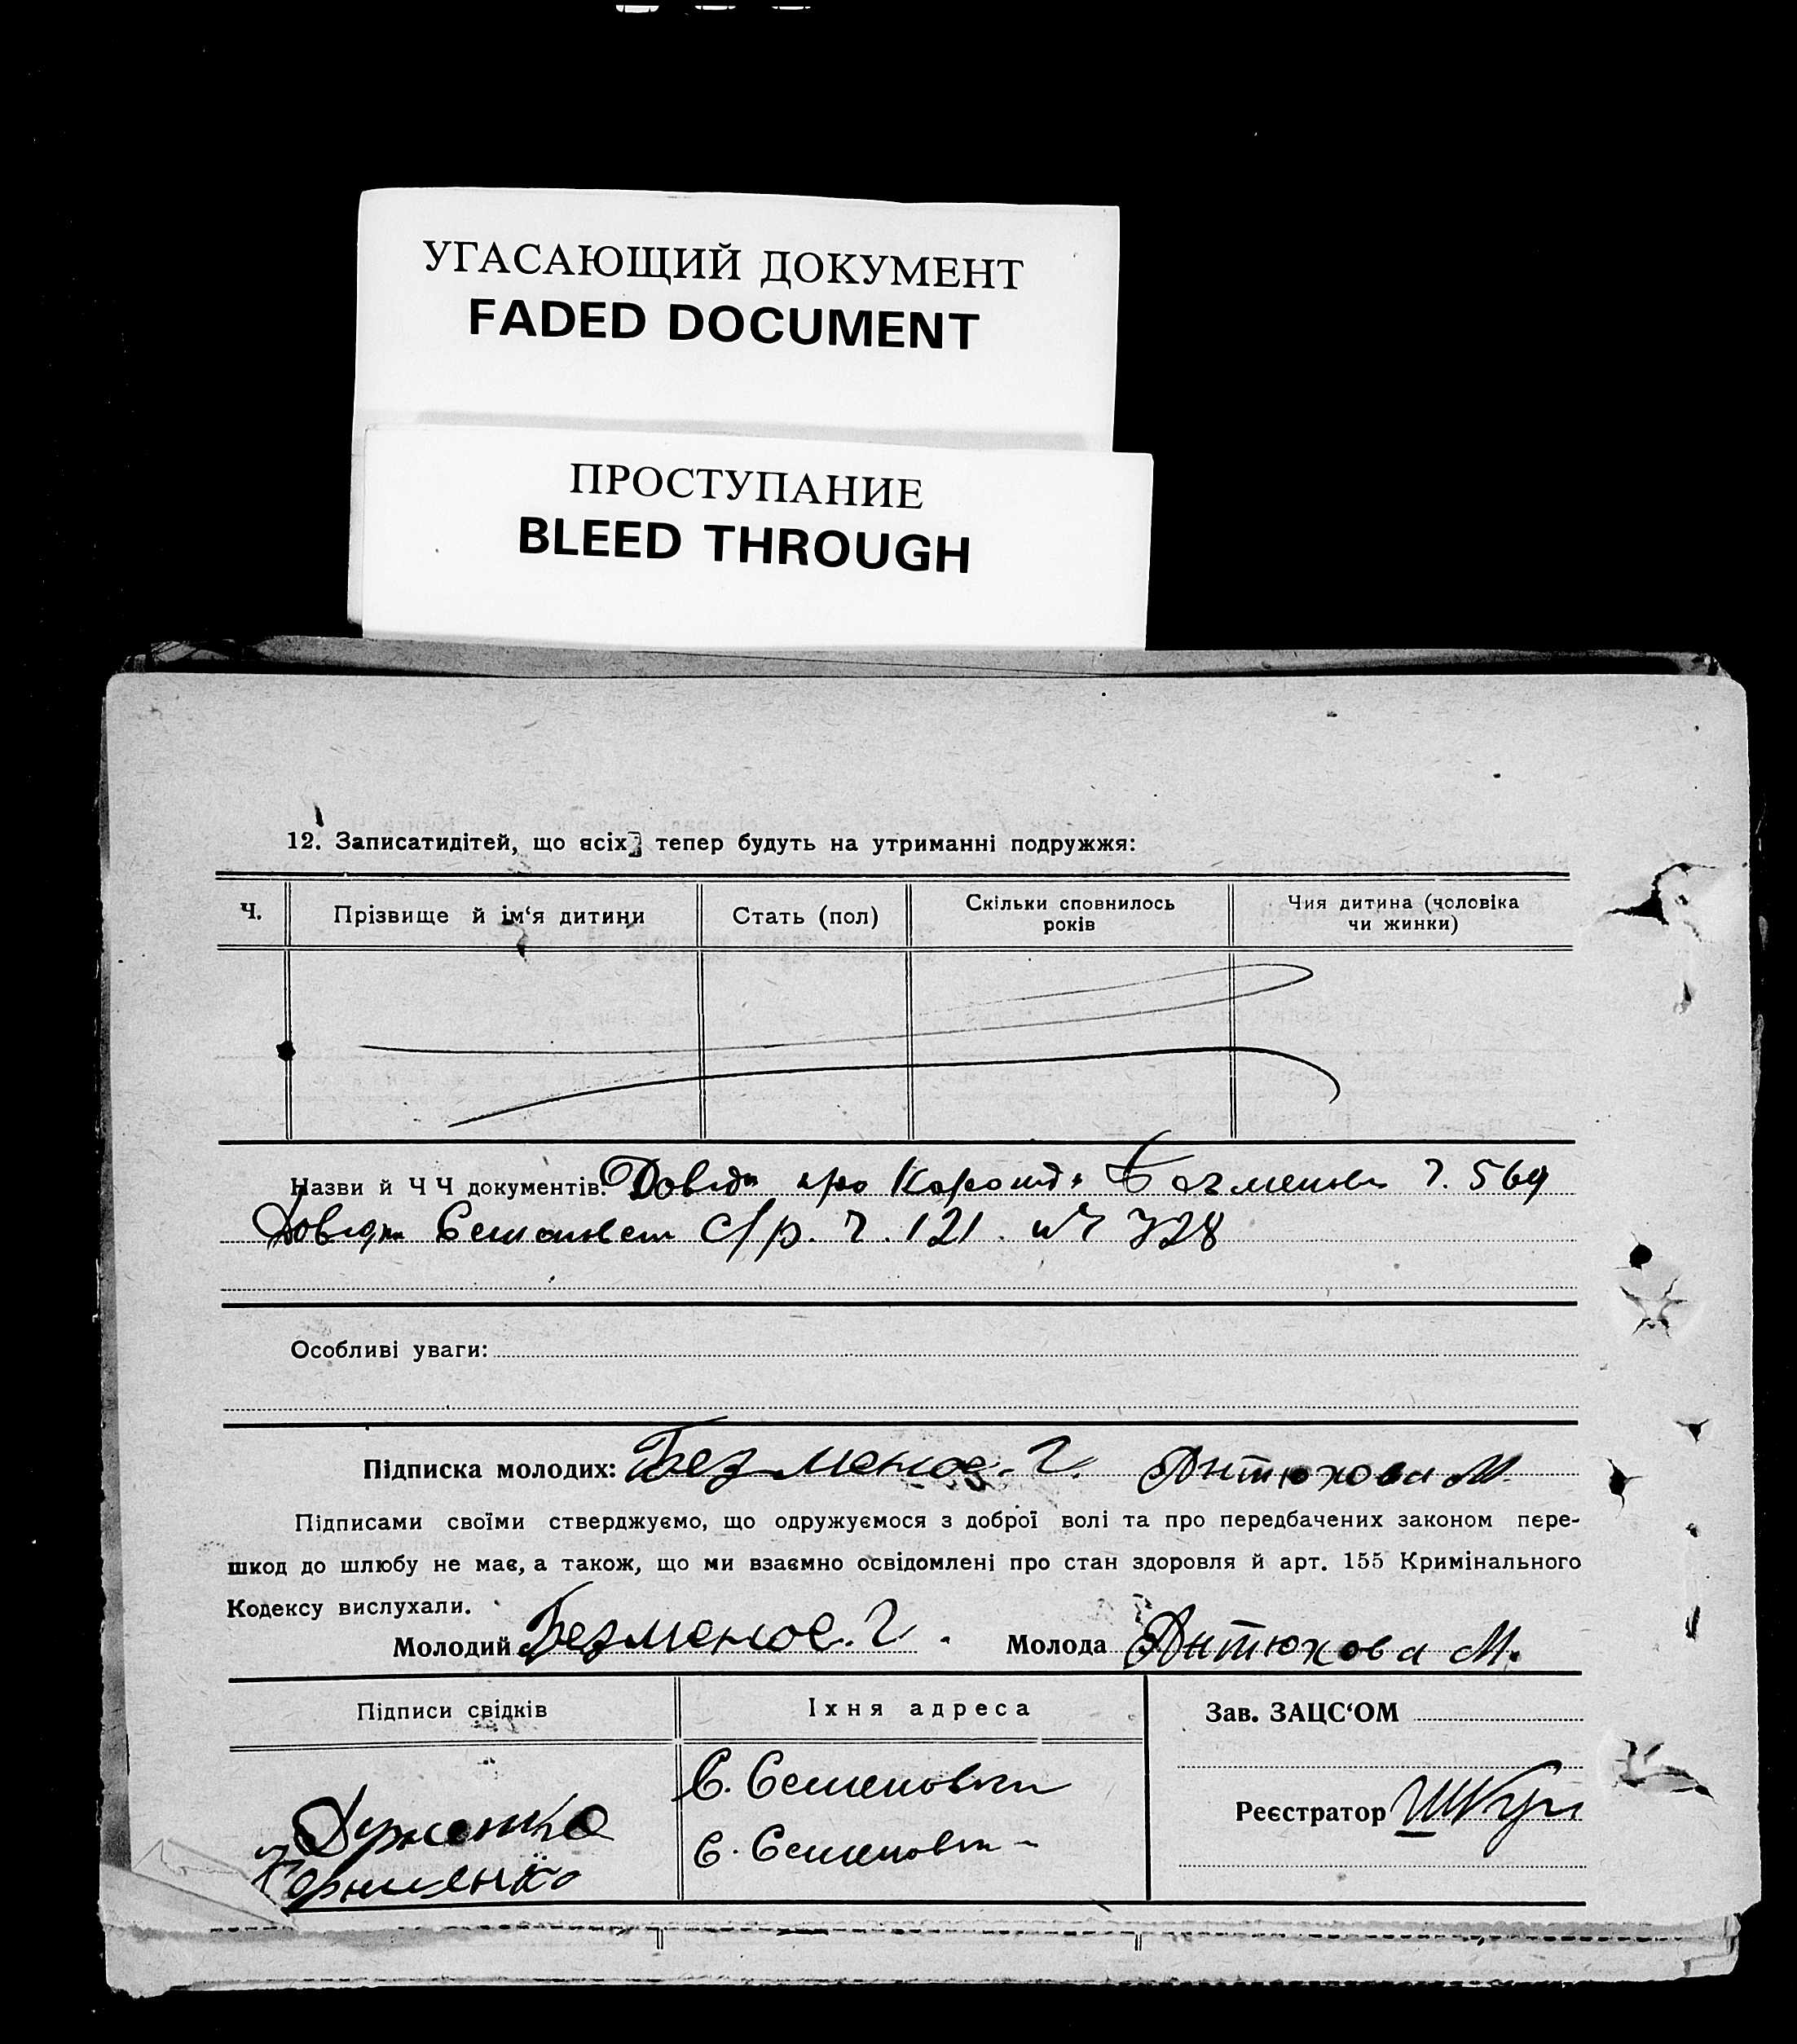 УГАСАЮЩИЙ ДОКУМЕНТ
FADED DOCUMENT
ПРОСТУПАНИЕ
BLEED THROUGH
12. Записатидітей, що всіх тепер будуть на утриманні подружжя:
Ч.
Прізвище й ім‘я дитини
Стать (пол)
Скільки сповнилось
років
Чия дитина (чоловіка
чи жинки)
Назви й Ч Ч документів. Довідк про Ч. 569
Довідка с/р. Ч. 121. 728
Особливі уваги:
Підписка молодих: Безменов. Г. Антюхова М.
Підписами своїми стверджуємо, що одружуємося з доброї волі та про передбачених законом пере-
шкод до шлюбу не має, а також, що ми взаємно освідомлені про стан здоровля й арт. 155 Кримінального
Кодексу вислухали.
Молодий Безменов. Г. Молода Антюхова М.
Підписи свідків
Їхня адреса
Зав. ЗАЦС‘ОМ
С. Семеновка
С. Семеновка
Реєстратор